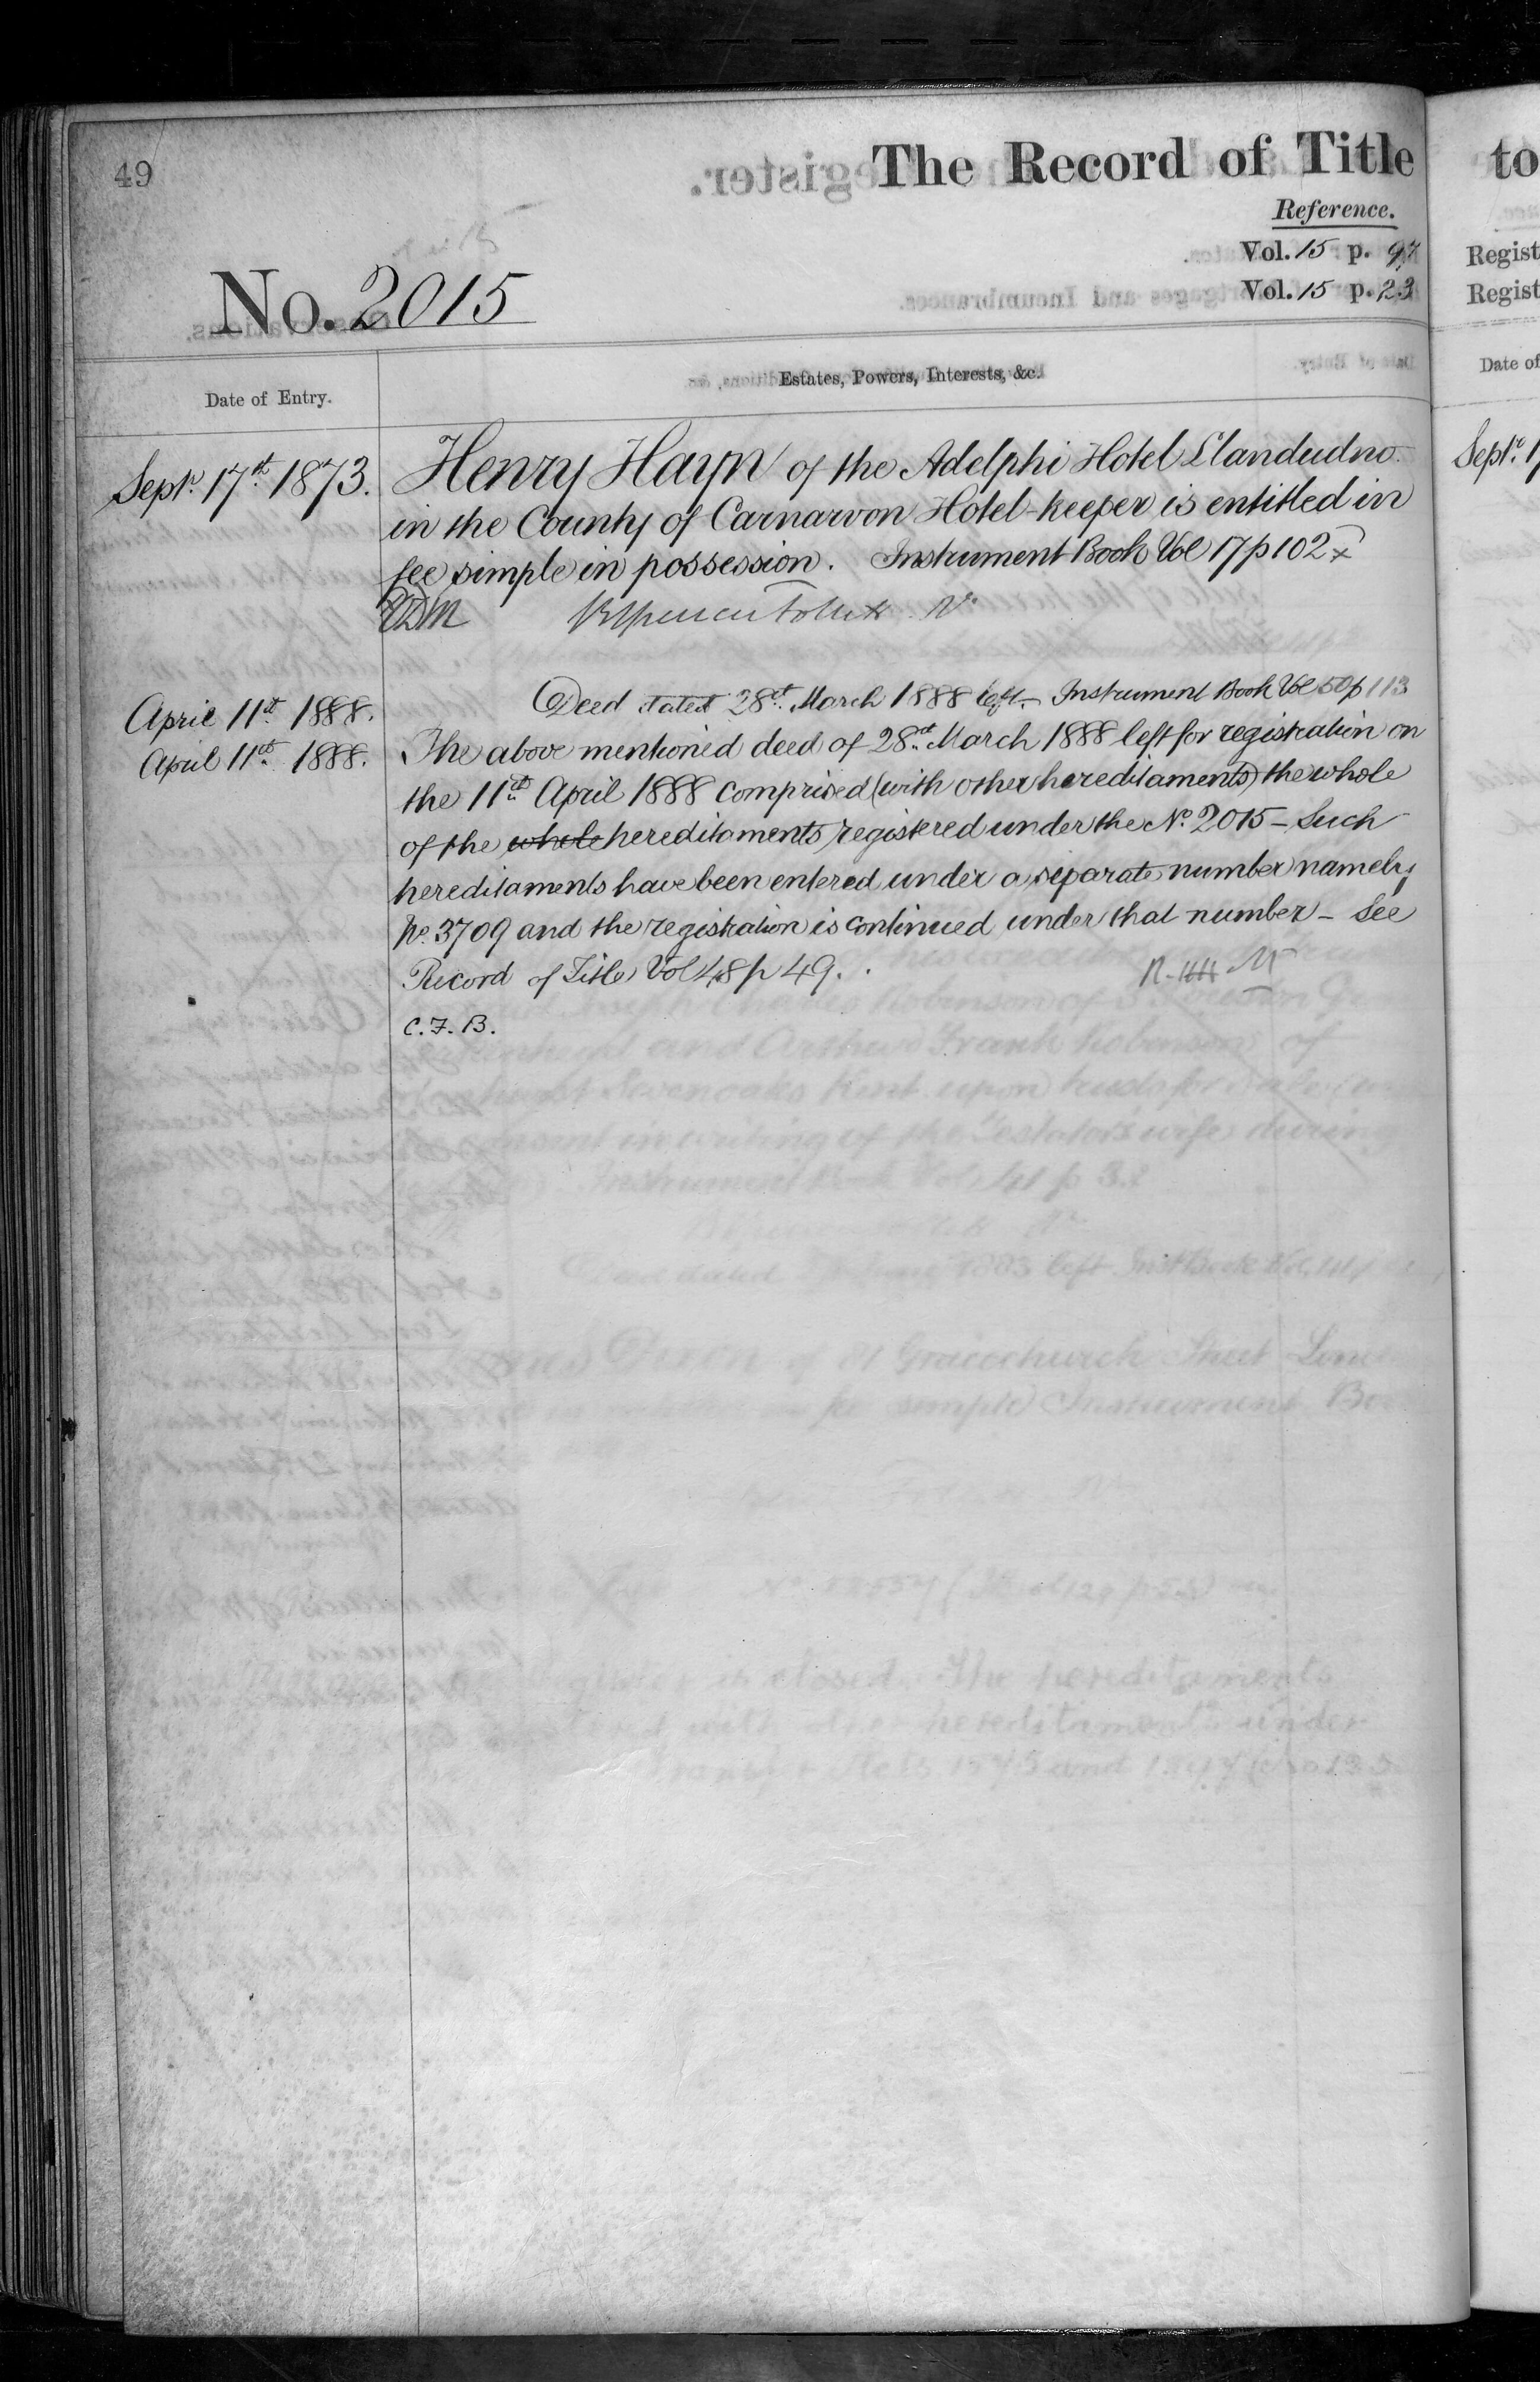 49
The Record of Title
to
Reference.
Vol. 15 p. 97
Regist
Vol. 15 p. 23
Regist
No. 2015
Date of Entry.
Estates, Powers, Interests, &c.
Date of
Septr. 17th 1873.
Henry Hayn of the Adelphi Hotel Llandudno
Septr. 1
in the County of Carnarvon Hotel-keeper is entitled in
fee simple in possession. Instrument Book Vol 17 p 102 x
April 11th 1888.
Deed dated 28th March 1888 left - Instrument Book Vol 50 p 113
April 11th 1888.
The above mentioned deed of 28th March 1888 left for registration on
the 11th April 1888 comprised (with other hereditaments) the whole
of the whole hereditaments registered under the No. 2015 - Such
hereditaments have been entered under a separate number namely
No. 3709 and the registration is continued under that number - See
Record of Title Vol 48 p 49.
C.F.B.